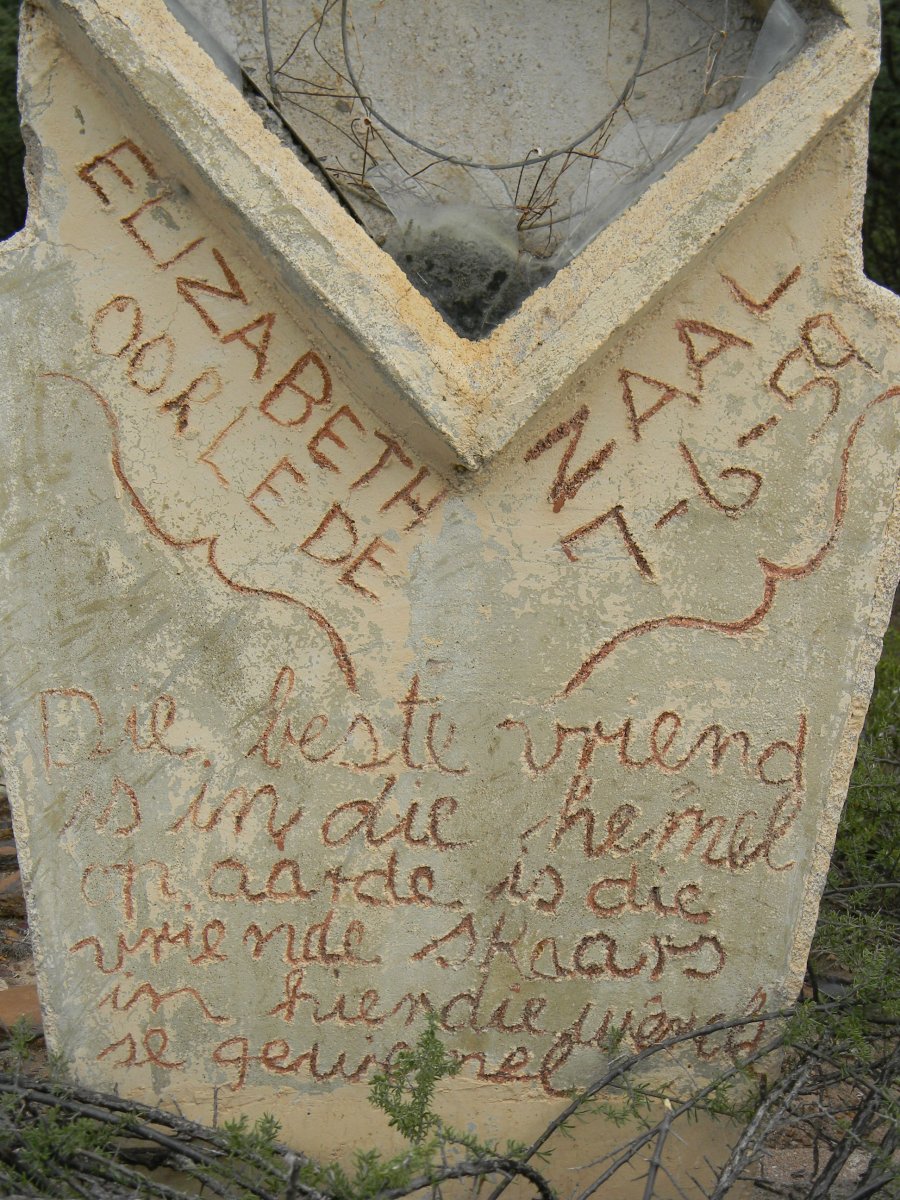 ELIZABETH
OORLEDE
NAAL
7-6-59
Die beste vriend
is in die hemel
op aarde is die
vriende skaars
in hierdie wêreld
se gewoemel